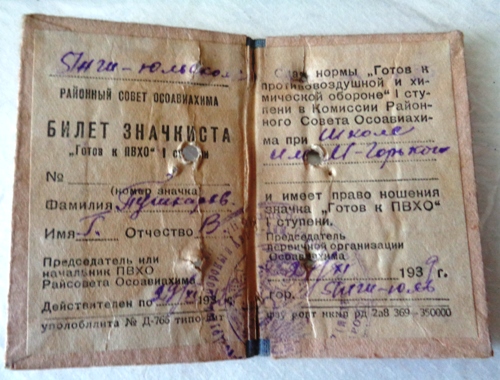 Янги-юльской
РАЙОННЫЙ СОВЕТ ОСОАВИАХИМА
БИЛЕТ ЗНАЧКИСТА
„Готов к ПВХО" I ступени
№
(номер значка)
Фамилия Пушкарев
Имя Г. Отчество В.
Председатель или
начальник ПВХО
Райсовета Осоавиахима
Действителен по 193 г.
уполобллита № Д-765 типо
Сдал нормы „Готов к
противовоздушной и хи-
мической обороне" I сту-
пени в Комиссии Район-
ного Совета Осоавиахи-
ма при школе
им. М-Горького
и имеет право ношения
значка „Готов к ПВХО"
I ступени.
Председатель
первичной организации
Осоавиахима
XI 1939 г.
гор. Янги-юль
369-350000